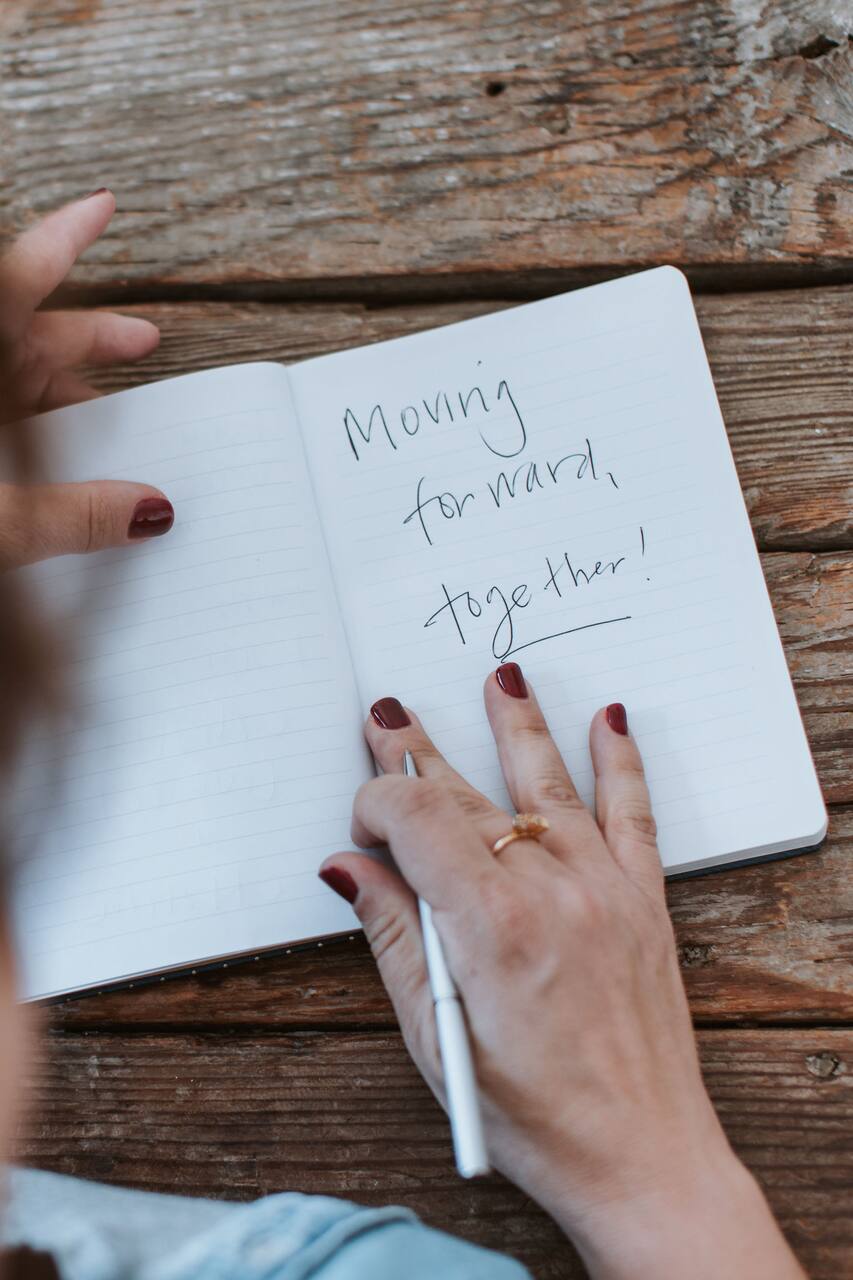 Moving
forward,
together!